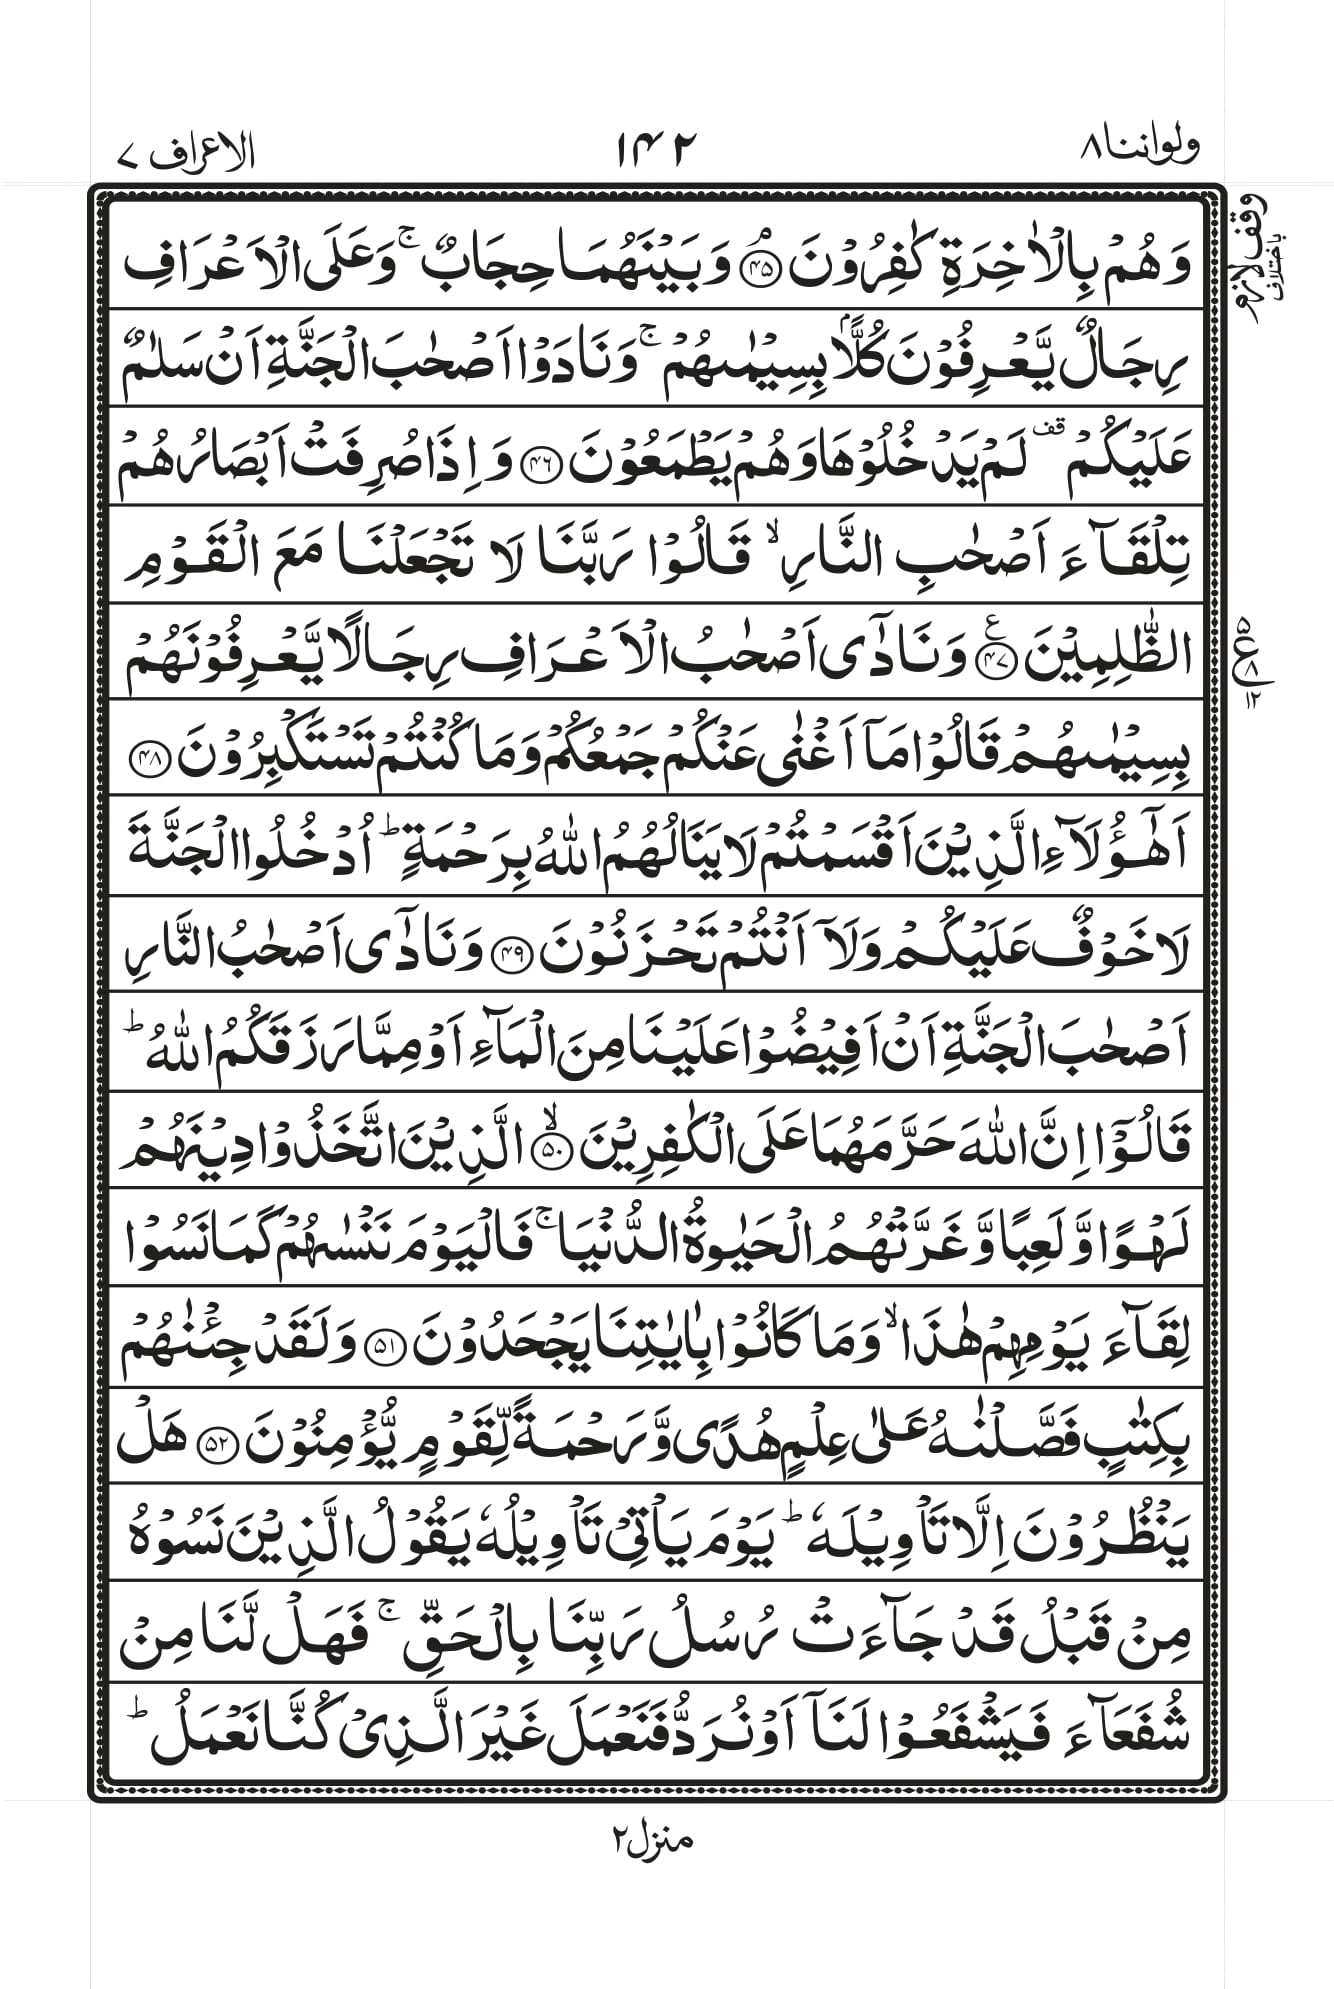 ولواننا ٨
١٤٢
الاعراف ٧
وَهُمۡ بِالۡاٰخِرَةِ كٰفِرُوۡنَ‌ۘ ﴿۴۵﴾ وَبَيۡنَهُمَا حِجَابٌ‌ ۚ وَعَلَى الۡاَعۡرَافِ
رِجَالٌ يَّعۡرِفُوۡنَ كُلًّاۢ بِسِيۡمٰٮهُمۡ‌ ۚ وَنَادَوۡا اَصۡحٰبَ الۡجَـنَّةِ اَنۡ سَلٰمٌ
عَلَيۡكُمۡ‌ قف لَمۡ يَدۡخُلُوۡهَا وَهُمۡ يَطۡمَعُوۡنَ‏ ﴿۴۶﴾ وَاِذَا صُرِفَتۡ اَبۡصَارُهُمۡ
تِلۡقَآءَ اَصۡحٰبِ النَّارِۙ قَالُوۡا رَبَّنَا لَا تَجۡعَلۡنَا مَعَ الۡقَوۡمِ
الظّٰلِمِيۡنَ ع ﴿۴۷﴾ وَنَادٰٓى اَصۡحٰبُ الۡاَعۡرَافِ رِجَالًا يَّعۡرِفُوۡنَهُمۡ
بِسِيۡمٰٮهُمۡ قَالُوۡا مَاۤ اَغۡنٰى عَنۡكُمۡ جَمۡعُكُمۡ وَمَا كُنۡتُمۡ تَسۡتَكۡبِرُوۡنَ ﴿۴۸﴾
اَهٰٓؤُلَۤاءِ الَّذِيۡنَ اَقۡسَمۡتُمۡ لَا يَنَالُهُمُ اللّٰهُ بِرَحۡمَةٍ‌ ؕ اُدۡخُلُوا الۡجَـنَّةَ
لَا خَوۡفٌ عَلَيۡكُمۡ وَلَاۤ اَنۡتُمۡ تَحۡزَنُوۡنَ ﴿۴۹﴾ وَنَادٰٓى اَصۡحٰبُ النَّارِ
اَصۡحٰبَ الۡجَـنَّةِ اَنۡ اَفِيۡضُوۡا عَلَيۡنَا مِنَ الۡمَآءِ اَوۡ مِمَّا رَزَقَكُمُ اللّٰهُ‌ ؕ
قَالُوۡۤا اِنَّ اللّٰهَ حَرَّمَهُمَا عَلَى الۡكٰفِرِيۡنَ ۙ ﴿۵۰﴾ الَّذِيۡنَ اتَّخَذُوۡا دِيۡنَهُمۡ
لَهۡوًا وَّلَعِبًا وَّغَرَّتۡهُمُ الۡحَيٰوةُ الدُّنۡيَا‌ ۚ فَالۡيَوۡمَ نَنۡسٰٮهُمۡ كَمَا نَسُوۡا
لِقَآءَ يَوۡمِهِمۡ هٰذَا ۙ وَمَا كَانُوۡا بِاٰيٰتِنَا يَجۡحَدُوۡنَ ﴿۵۱﴾ وَلَقَدۡ جِئۡنٰهُمۡ
بِكِتٰبٍ فَصَّلۡنٰهُ عَلٰى عِلۡمٍ هُدًى وَّرَحۡمَةً لِّقَوۡمٍ يُّؤۡمِنُوۡنَ ﴿۵۲﴾ هَلۡ
يَنۡظُرُوۡنَ اِلَّا تَاۡوِيۡلَهٗ‌ ؕ يَوۡمَ يَاۡتِىۡ تَاۡوِيۡلُهٗ يَقُوۡلُ الَّذِيۡنَ نَسُوۡهُ
مِنۡ قَبۡلُ قَدۡ جَآءَتۡ رُسُلُ رَبِّنَا بِالۡحَقِّ‌ ۚ فَهَلۡ لَّـنَا مِنۡ
شُفَعَآءَ فَيَشۡفَعُوۡا لَـنَاۤ اَوۡ نُرَدُّ فَنَعۡمَلَ غَيۡرَ الَّذِىۡ كُنَّا نَعۡمَلُ‌ ؕ
وقف لازم
باختلاف
۵
ع ٨
١٢
منزل ٢